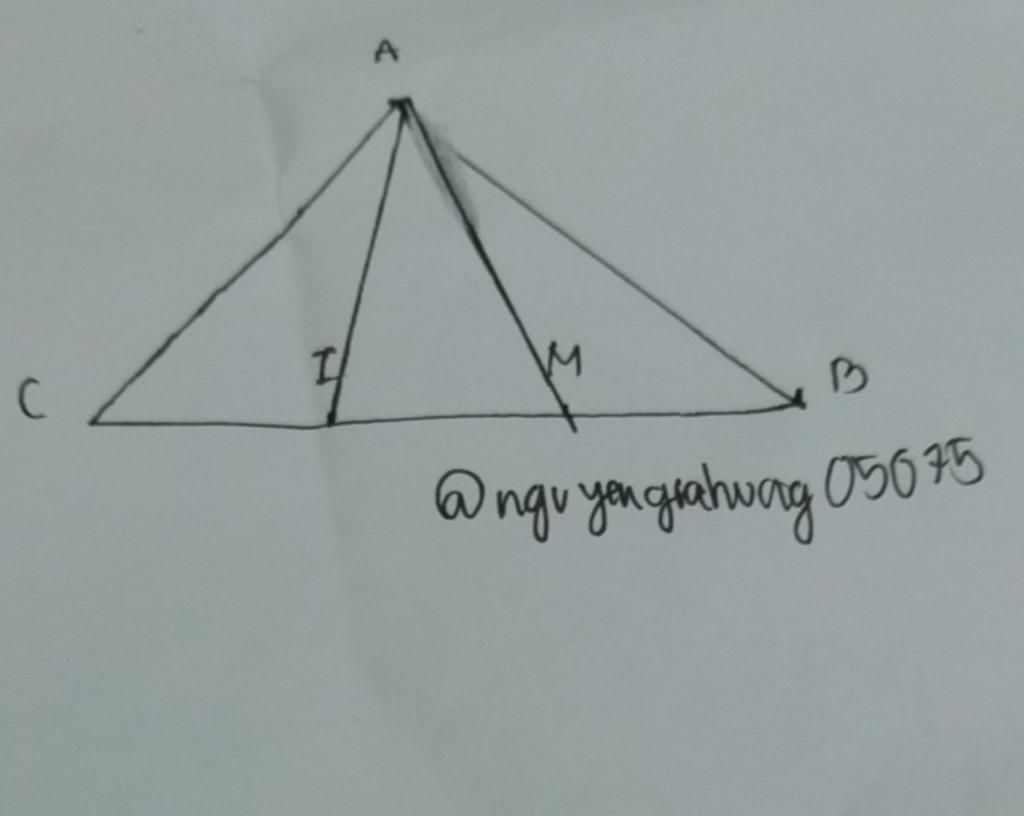 A
I
M
C
B
@nguyengiahuong05075